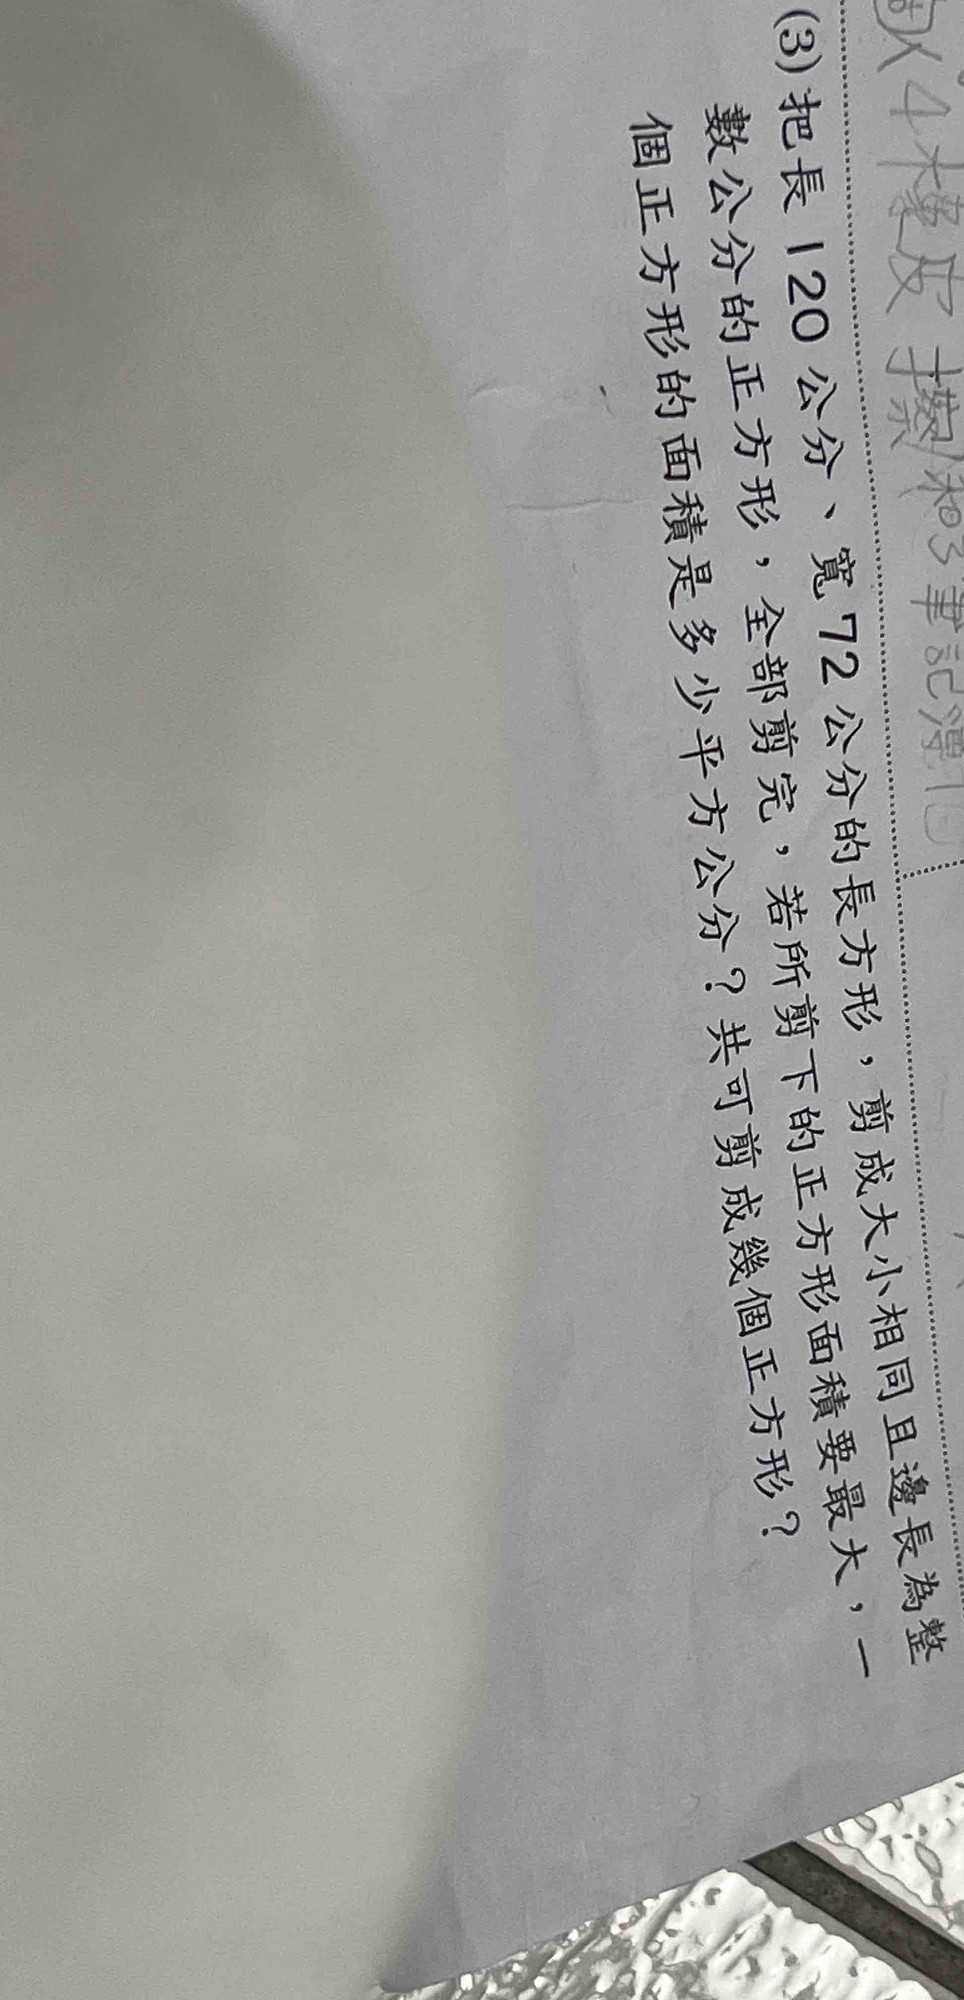 (3)把長120公分、寬72公分的長方形，剪成大小相同且邊長為整
數公分的正方形，全部剪完，若所剪下的正方形面積要最大，一
個正方形的面積是多少平方公分？共可剪成幾個正方形？